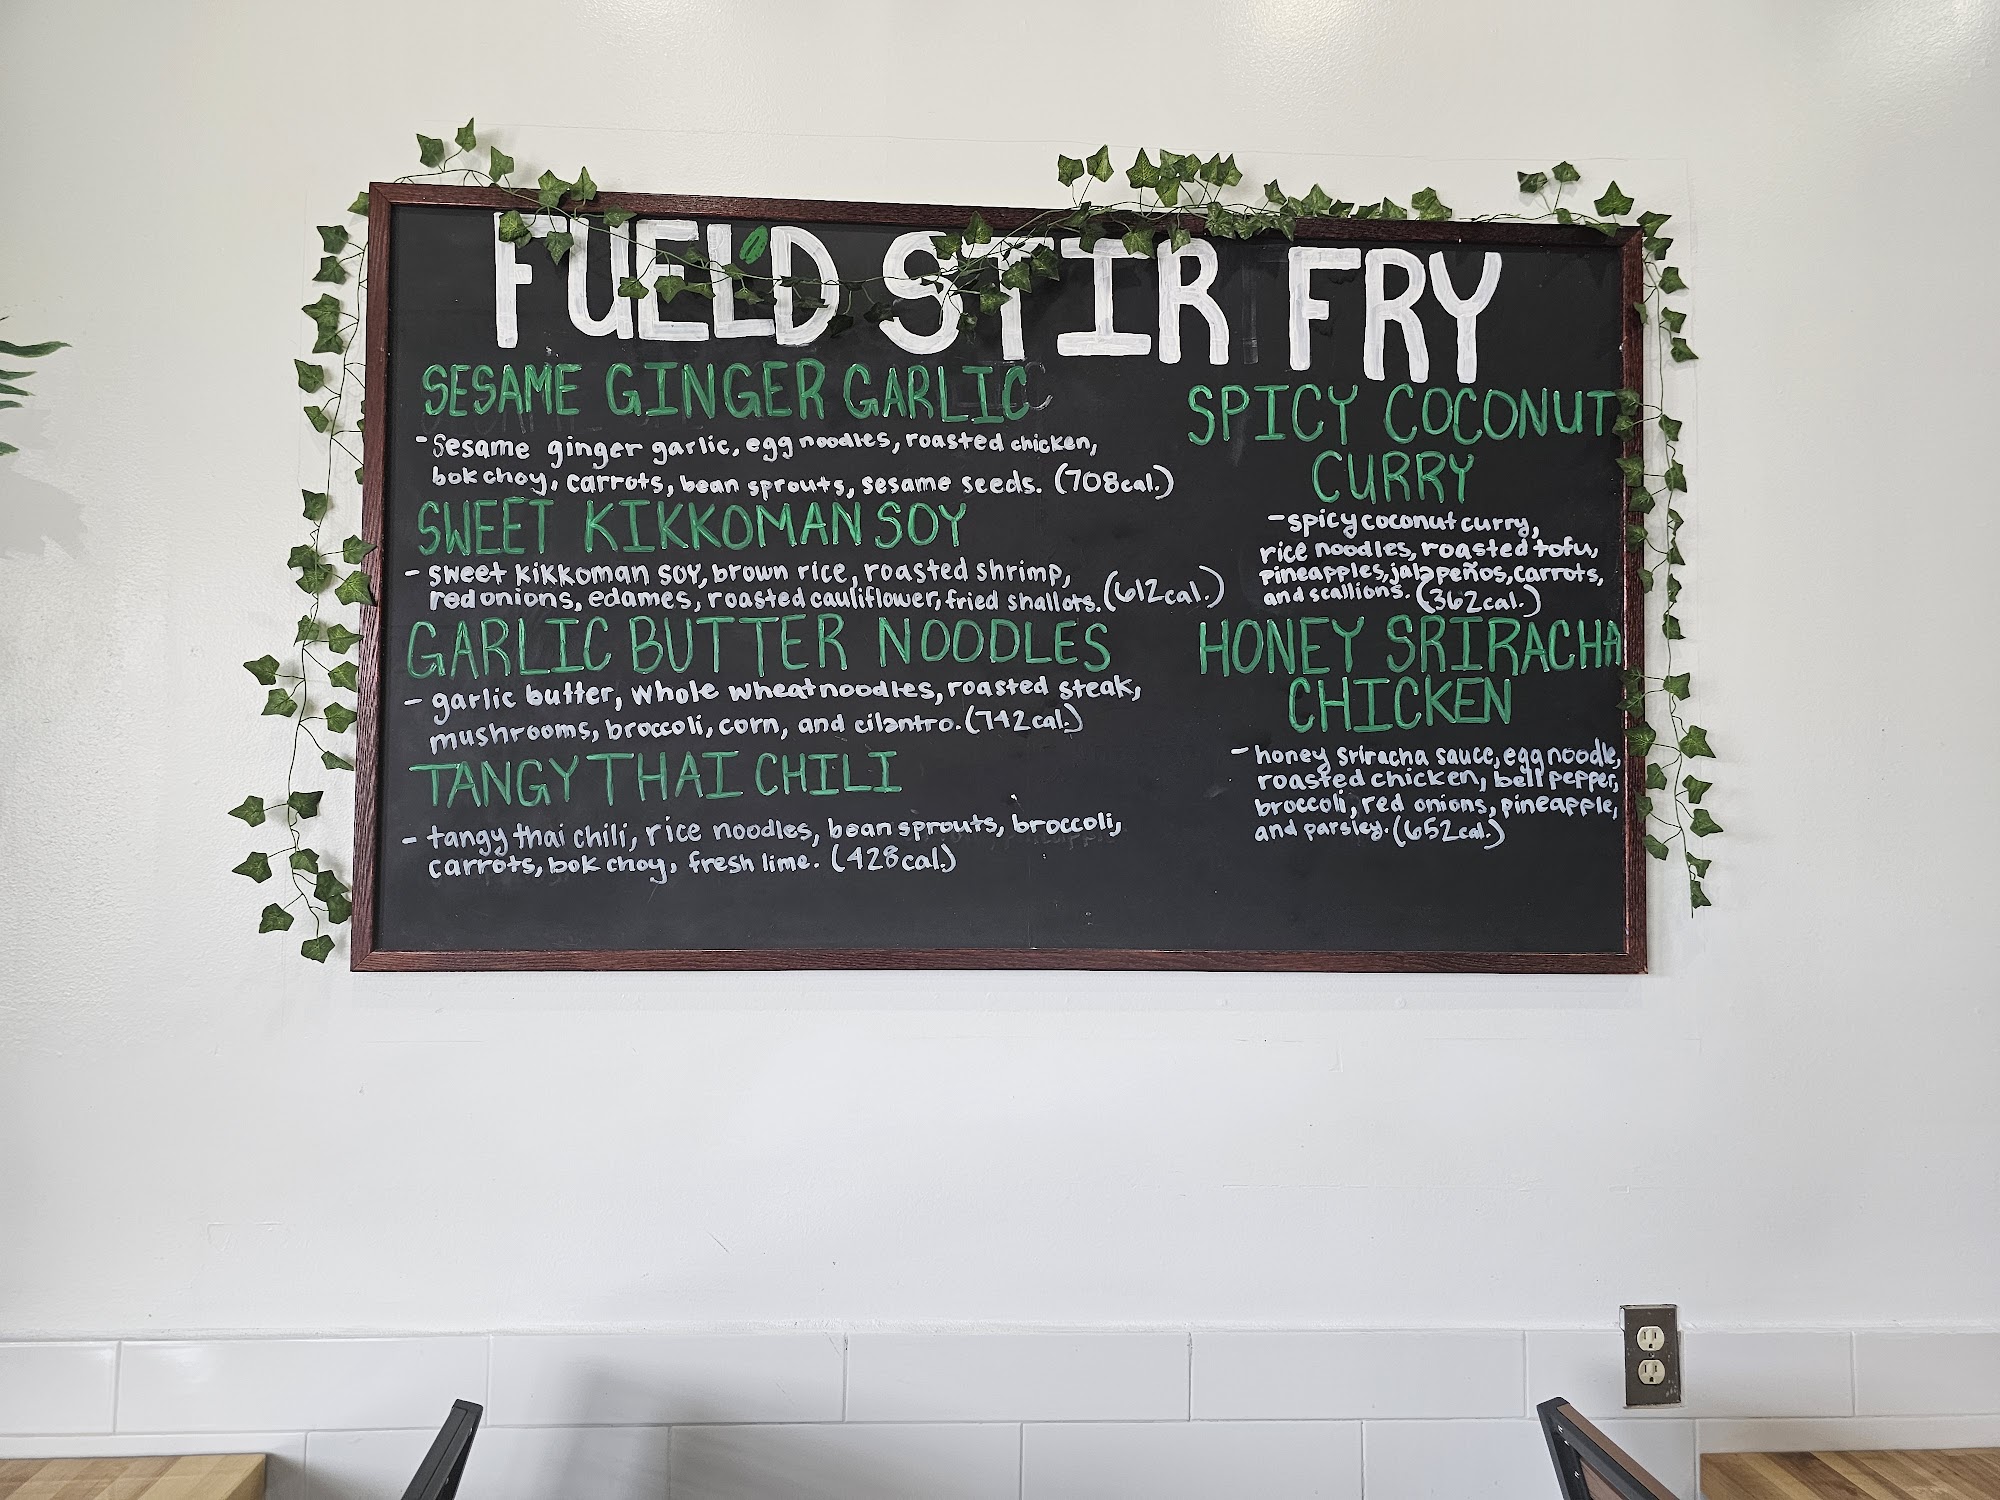 FUEL'D STIR FRY
SESAME GINGER GARLIC
- Sesame ginger garlic, egg noodles, roasted chicken,
bok choy, carrots, bean sprouts, sesame seeds. (708cal.)
SWEET KIKKOMAN SOY
- sweet kikkoman soy, brown rice, roasted shrimp,
red onions, edames, roasted cauliflower, fried shallots. (612cal.)
GARLIC BUTTER NOODLES
- garlic butter, whole wheat noodles, roasted steak,
mushrooms, broccoli, corn, and cilantro. (742cal.)
TANGY THAI CHILI
- tangy thai chili, rice noodles, bean sprouts, broccoli,
carrots, bok choy, fresh lime. (428cal.)
SPICY COCONUT
CURRY
- spicy coconut curry,
rice noodles, roasted tofu,
pineapples, jalapeños, carrots,
and scallions. (362cal.)
HONEY SRIRACHA
CHICKEN
- honey sriracha sauce, egg noodle,
roasted chicken, bell pepper,
broccoli, red onions, pineapple,
and parsley. (652cal.)